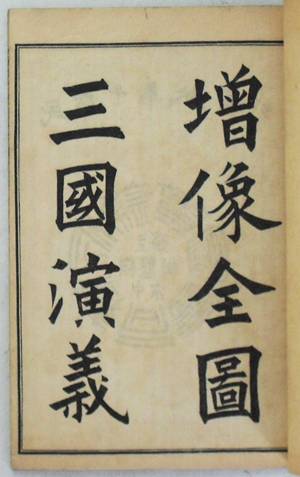 增像全圖
三國演義